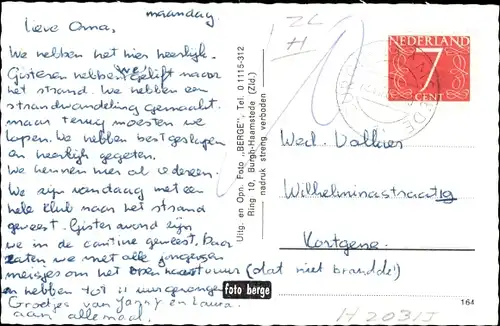 maandag
Lieve Oma,
We hebben het hier heerlijk.
Gisteren hebben we gelift naar
het strand. We hebben een
strandwandeling gemaakt.
maar terug moesten we
lopen. We hebben best geslapen
en heerlijk gegeten.
We kennen hier al iedereen.
We zijn vandaag met een
hele klub naar het strand
geweest. Gisteravond zijn
we in de cantine geweest. Daar
zaten we met alle jongens en
meisjes om het open haard vuur (dat niet brandde!)
en hebben tot 11 uur gezongen
Groetjes van Janny en Laura
aan allemaal.
Uitg. en Opn. Foto „BERGE”, Tel. 0 1115-312
Ring 10, Burgh-Haamstede (Zld.)
nadruk streng verboden
foto berge
ZL
H
NEDERLAND
7
CENT
Wed.
Wilhelminastraat 19
Kortgene
164
H 2031J